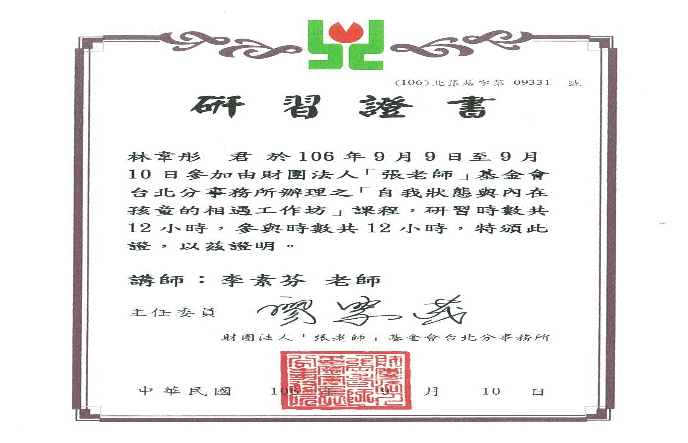 (106)北張基字第 09331 號
研習證書
林韋彤 君 於 106 年 9 月 9 日至 9 月
10 日參加由財團法人「張老師」基金會
台北分事務所辦理之「自我狀態與內在
孩童的相遇工作坊」課程，研習時數共
12 小時，參與時數共 12 小時，特頒此
證，以茲證明。
講師：李素芬 老師
主任委員
財團法人「張老師」基金會台北分事務所
中華民國 106 年 9 月 10 日